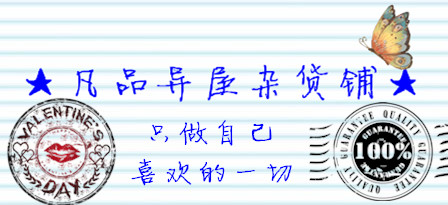 ★凡品异屋杂货铺★
只做自己
喜欢的一切
VALENTINE'S
DAY
QUALITY GUARANTEE QUALITY GUARANTEE
GUARANTEE
100%